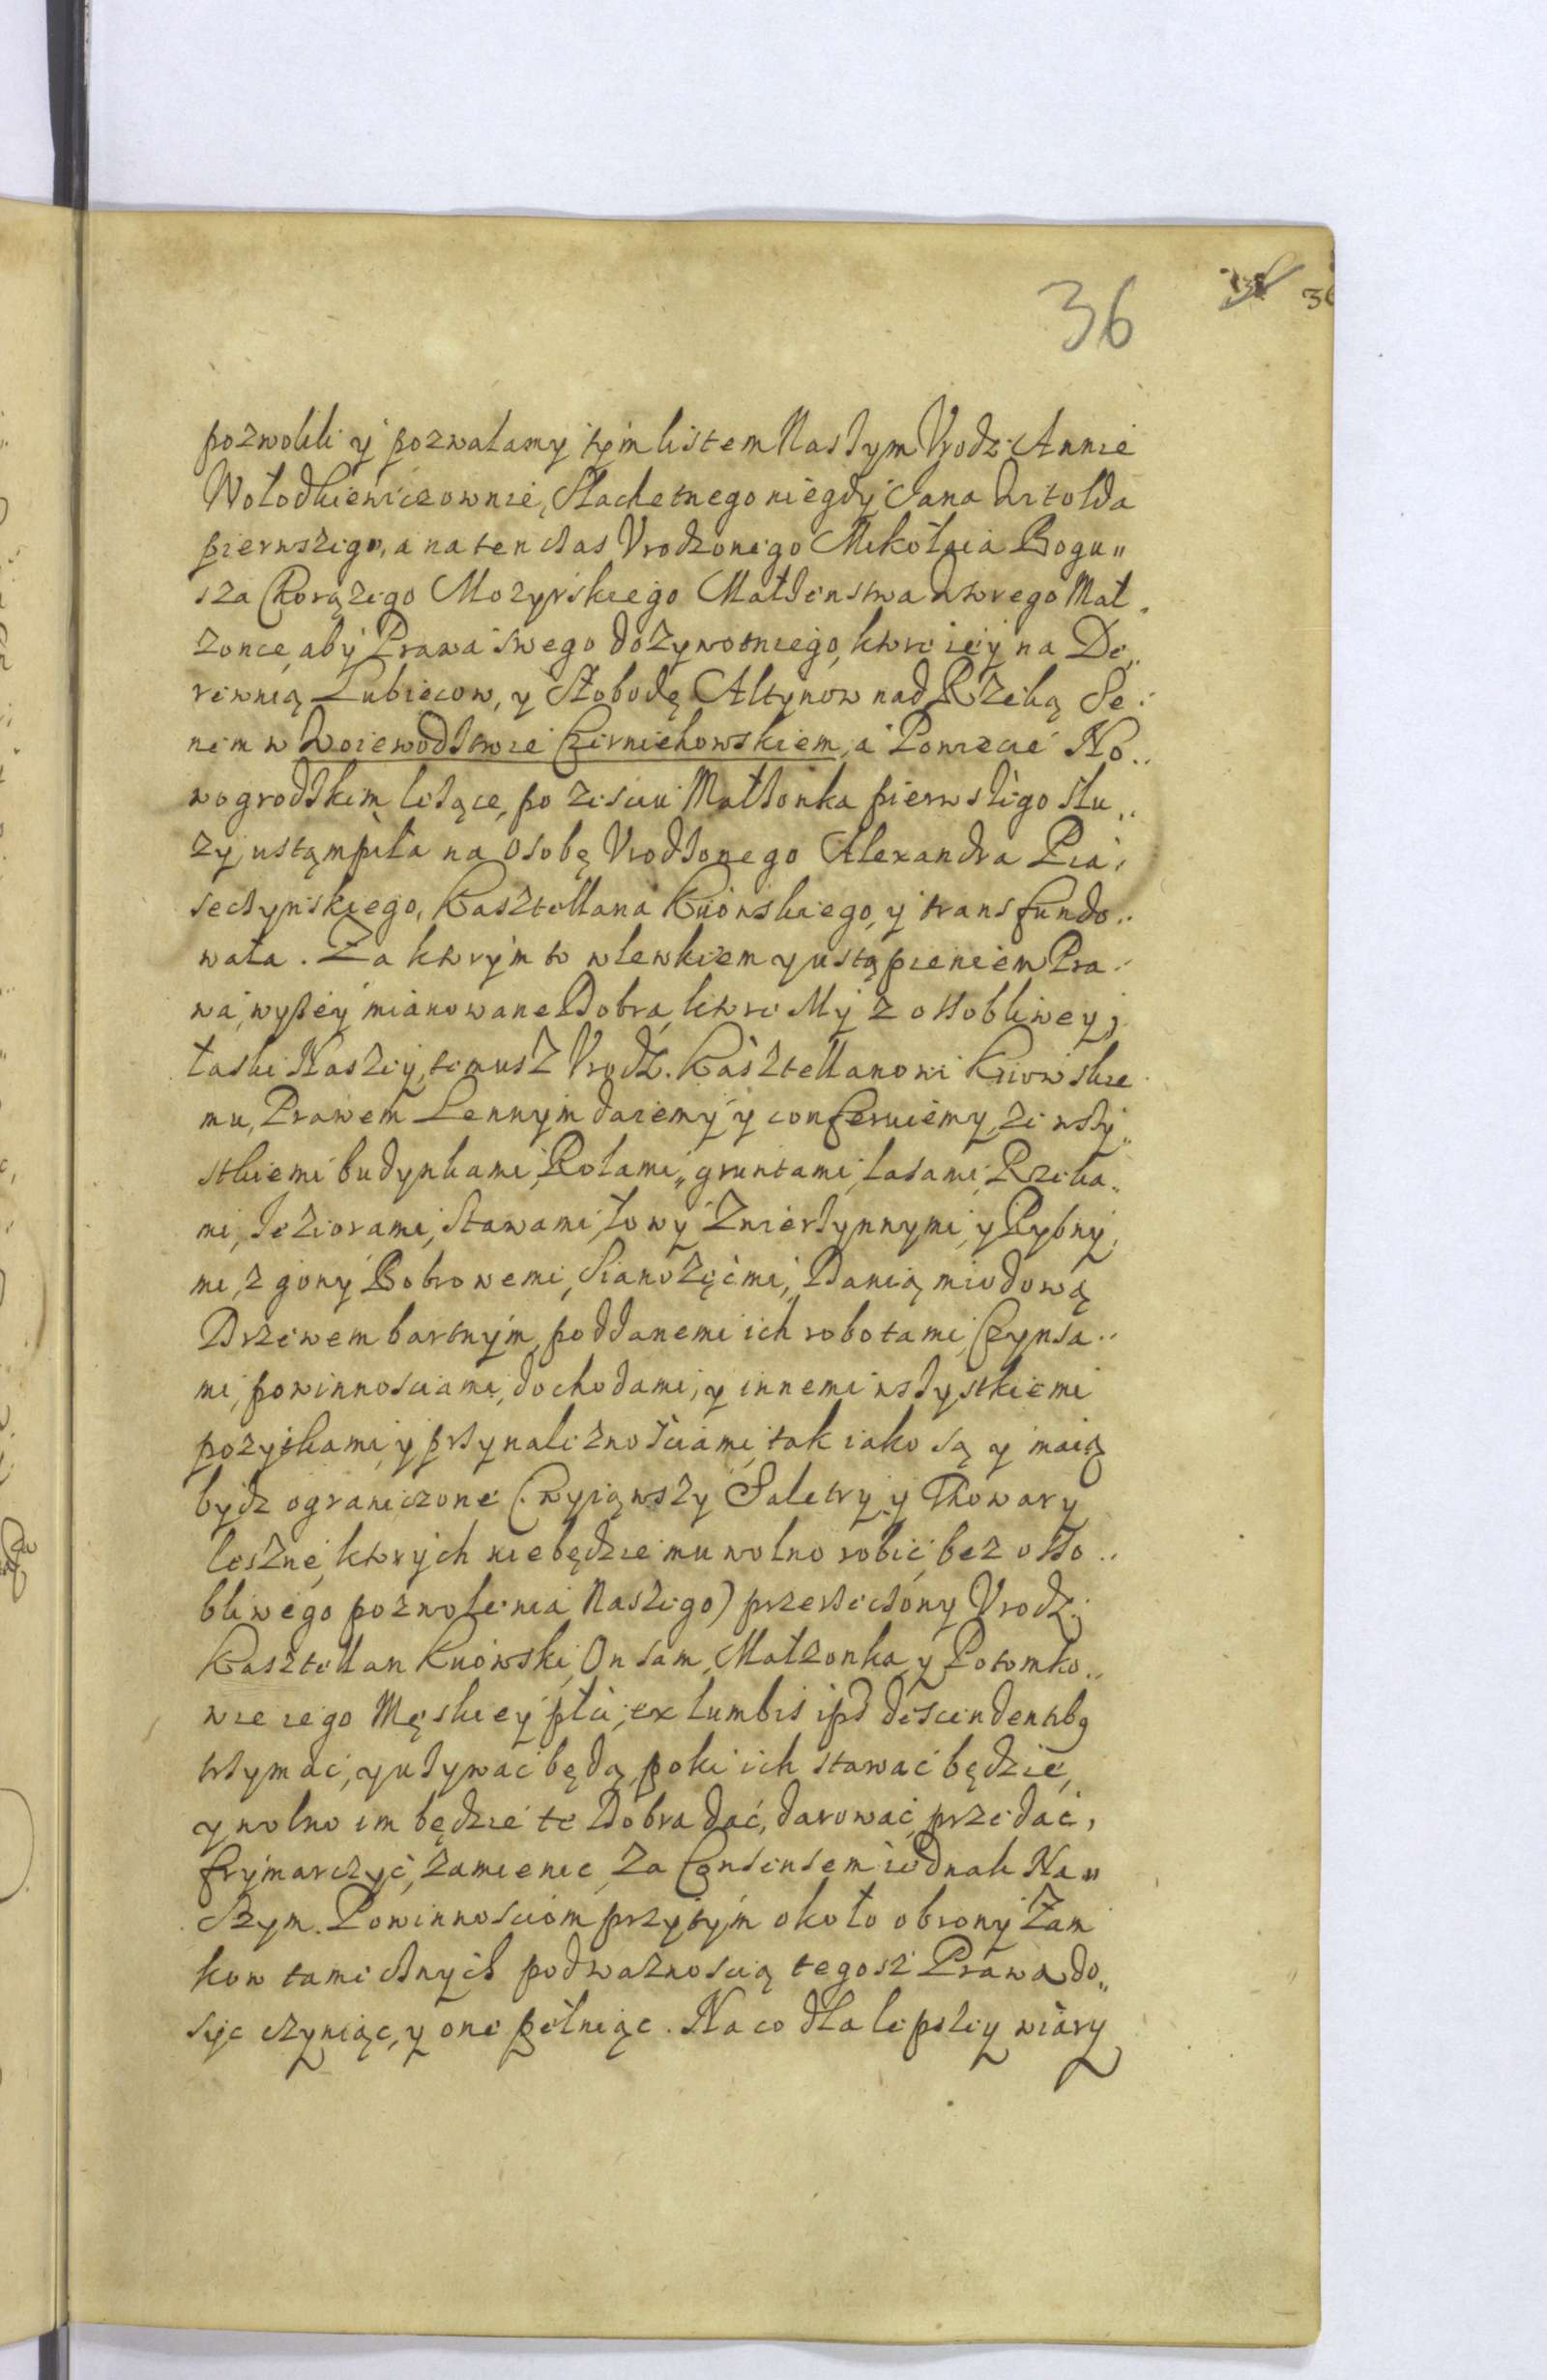 36
36
pozwolili y pozwalamy tym listem Naszym Vrodz: Annie
Wołodkiewiczownie, Slachetnego niegdy Jana Witolda
pierwszego, a na ten czas Vrodzonego Mikołaia Bogu„
sza Chorążego Mozyrskiego Małzenstwa wtorego Mał„
zonce, aby Prawa swego dożywotniego, ktore iey na De„
rewnią Lubiecow, y Słobodę Altynow nad Rzeką Se„
nem w Woiewodztwie Czerniehowskiem, a Powiecie No„
wogrodzkim leżące, po zesciu Małżonka pierwszego słu„
zy, ustąmpiła na osobę Vrodzonego Alexandra Pia„
seczynskiego, Kasztellana Kiiowskiego, y transfundo„
wała. Za ktorym to wlewkiem y ustąpieniem Pra„
wa, wyszey mianowane Dobra, ktore My z ossobliwey
łaski Naszey, temusz Vrodz. Kasztellanowi Kiiowskie
mu, Prawem Lennym daiemy y conferuiemy, ze wszy„
stkiemi budynkami, Rolami, gruntami, Lasami, Rzeka„
mi, Jeziorami, Stawami, łowy Zwierzynnymi, y Rybny„
mi, z gony Bobrowemi, Sianożęćmi, Danią miodową
Drzewem bartnym, poddanemi ich robotami, Czynsa„
mi, powinnosciami, dochodami, y innemi wszystkiemi
pozytkami, y przynaleznościami, tak iako są y maią
bydz ograniczone (wyiąwszy Saletry, y Thowary
leszne, ktorych nie będzie mu wolno robić, bez osso„
bliwego pozwolenia Naszego) przerzeczony Vrodz:
Kasztellan Kiiowski, On sam, Małzonka, y Potomko„
wie iego Męskiey płci, ex lumbis ips descendentbq
trzymać, y używać będą, poki ich stawać będzie,
y wolno im będzie te Dobra dać, darować, przedać,
frymarczyć, zamienić, za Consensem iednak Na„
szym. Powinnosciom przytym około obrony Zam
kow tamecznych pod ważnoscią tegosz Prawa do„
syc czyniąc, y one pełniąc. Na co dla lepszey wiary